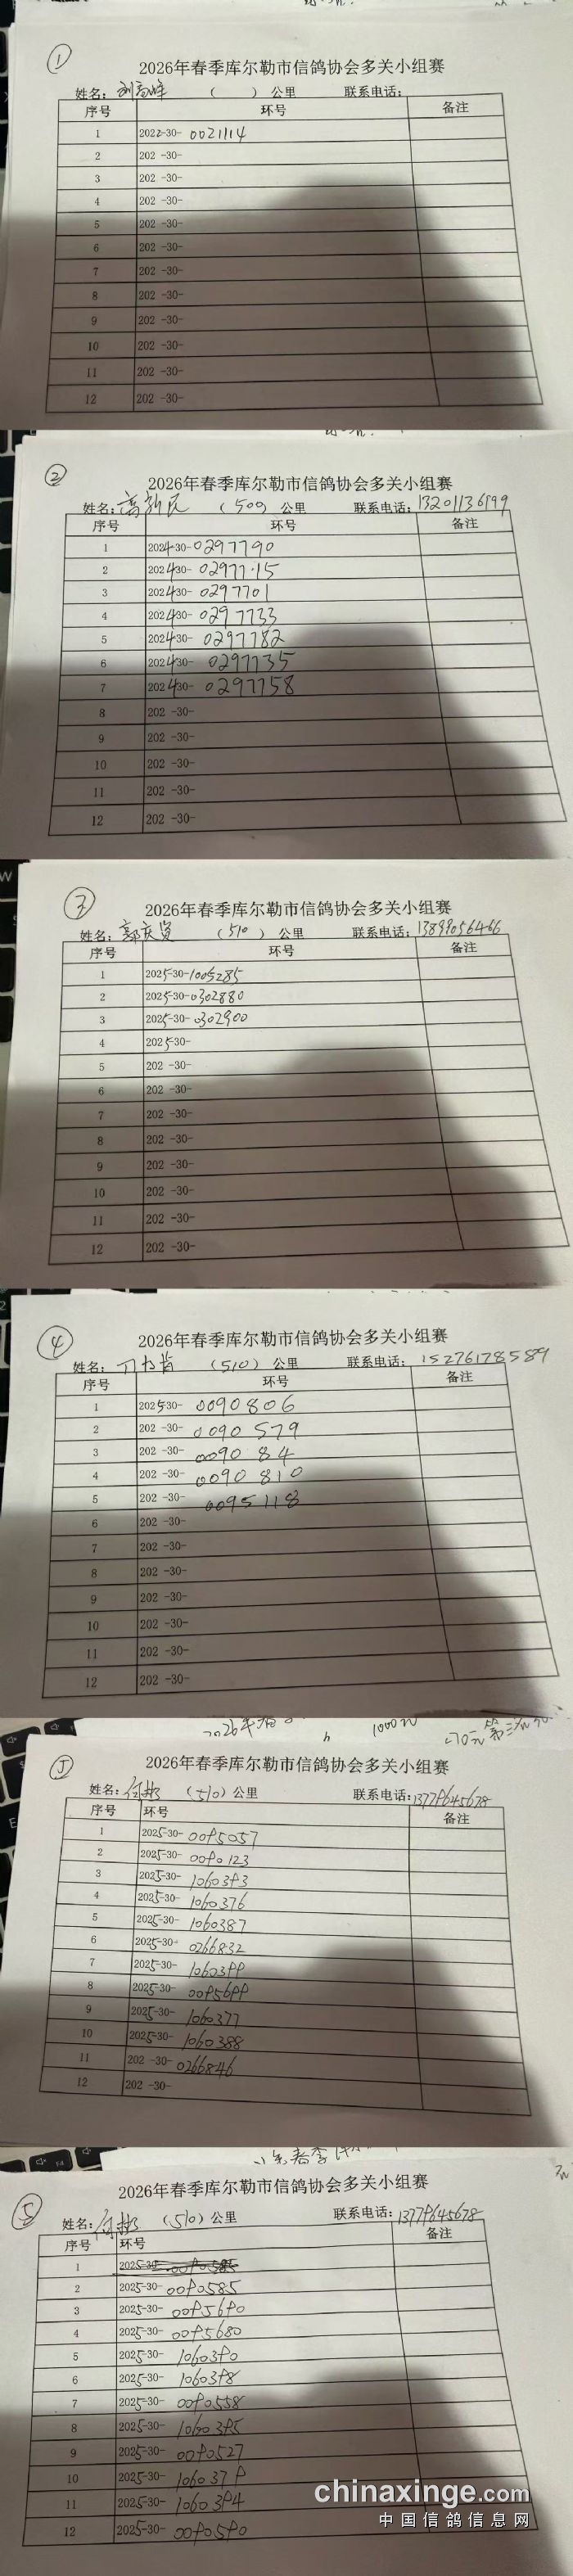 ①
2026年春季库尔勒市信鸽协会多关小组赛
姓名: ( ) 公里 联系电话:
序号 环号 备注
1 2022-30- 0021114
2 202 -30-
3 202 -30-
4 202 -30-
5 202 -30-
6 202 -30-
7 202 -30-
8 202 -30-
9 202 -30-
10 202 -30-
11 202 -30-
12 202 -30-
②
2026年春季库尔勒市信鸽协会多关小组赛
姓名: 高新民 (500) 公里 联系电话: 13201136999
序号 环号 备注
1 2024-30-0297790
2 2024-30-0297715
3 2024-30-0297701
4 2024-30-0297733
5 2024-30-0297782
6 2024-30-0297735
7 2024-30-0297758
8 202 -30-
9 202 -30-
10 202 -30-
11 202 -30-
12 202 -30-
③
2026年春季库尔勒市信鸽协会多关小组赛
姓名: 郭庆 (510) 公里 联系电话: 13899056466
序号 环号 备注
1 2025-30-1005285
2 2025-30-0302880
3 2025-30-0302900
4 2025-30-
5 202 -30-
6 202 -30-
7 202 -30-
8 202 -30-
9 202 -30-
10 202 -30-
11 202 -30-
12 202 -30-
④
2026年春季库尔勒市信鸽协会多关小组赛
姓名: (510) 公里 联系电话: 15276178589
序号 环号 备注
1 2025-30- 0090806
2 202 -30- 0090579
3 202 -30- 009084
4 202 -30- 0090810
5 202 -30- 0095118
6 202 -30-
7 202 -30-
8 202 -30-
9 202 -30-
10 202 -30-
11 202 -30-
12 202 -30-
2026年 1000元
⑤
2026年春季库尔勒市信鸽协会多关小组赛
姓名: 何彬 (510) 公里 联系电话: 13779645678
序号 环号 备注
1 2025-30- 0095057
2 2025-30- 0090123
3 2025-30- 1060393
4 2025-30- 1060376
5 2025-30- 1060387
6 2025-30- 0266832
7 2025-30- 1060399
8 2025-30- 0095699
9 2025-30- 1060377
10 2025-30- 1060388
11 202 -30- 0266846
12 202 -30-
⑤
2026年春季库尔勒市信鸽协会多关小组赛
姓名: 何彬 (510) 公里 联系电话: 13779645678
序号 环号 备注
1 2025-30- 0090585
2 2025-30- 0090585
3 2025-30- 0095690
4 2025-30- 0095680
5 2025-30- 1060390
6 2025-30- 1060398
7 2025-30- 0090558
8 2025-30- 1060395
9 2025-30- 0090527
10 2025-30- 1060379
11 2025-30- 1060394
12 2025-30- 0090590
chinaxinge.com
中国信鸽信息网